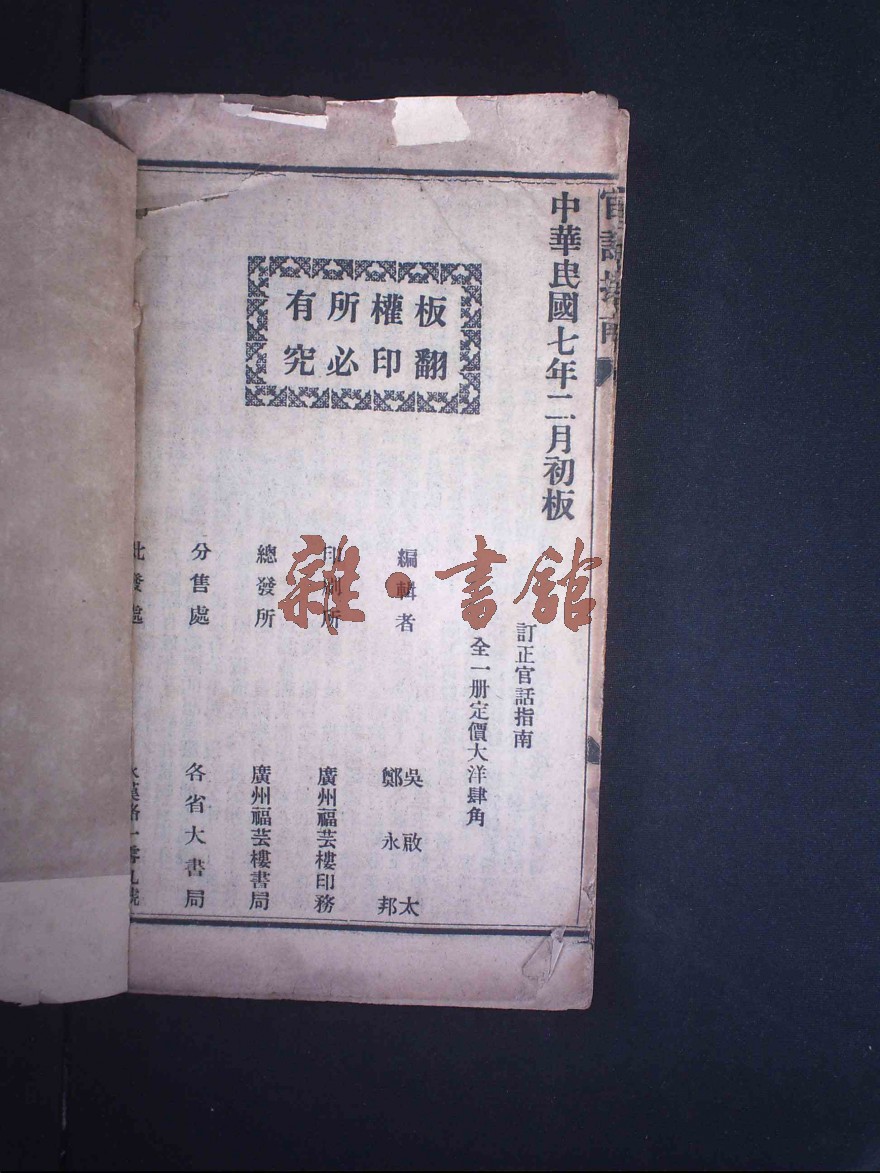 官話指南
中華民國七年二月初板
板權所有
翻印必究
訂正官話指南
全一册定價大洋肆角
編輯者 吳啟太
鄭永邦
印刷所 廣州福芸樓印務
總發所 廣州福芸樓書局
分售處 各省大書局
批發處 永漢路一零九號
雜·書館